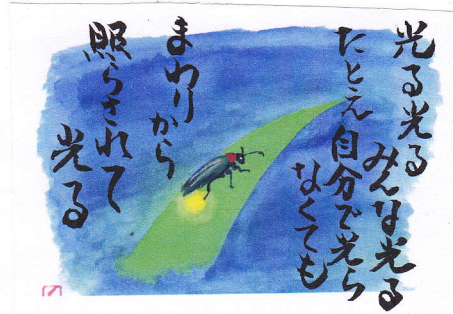 光る光る
みんな光る
たとえ自分で光ら
なくても
まわりから
照らされて
光る